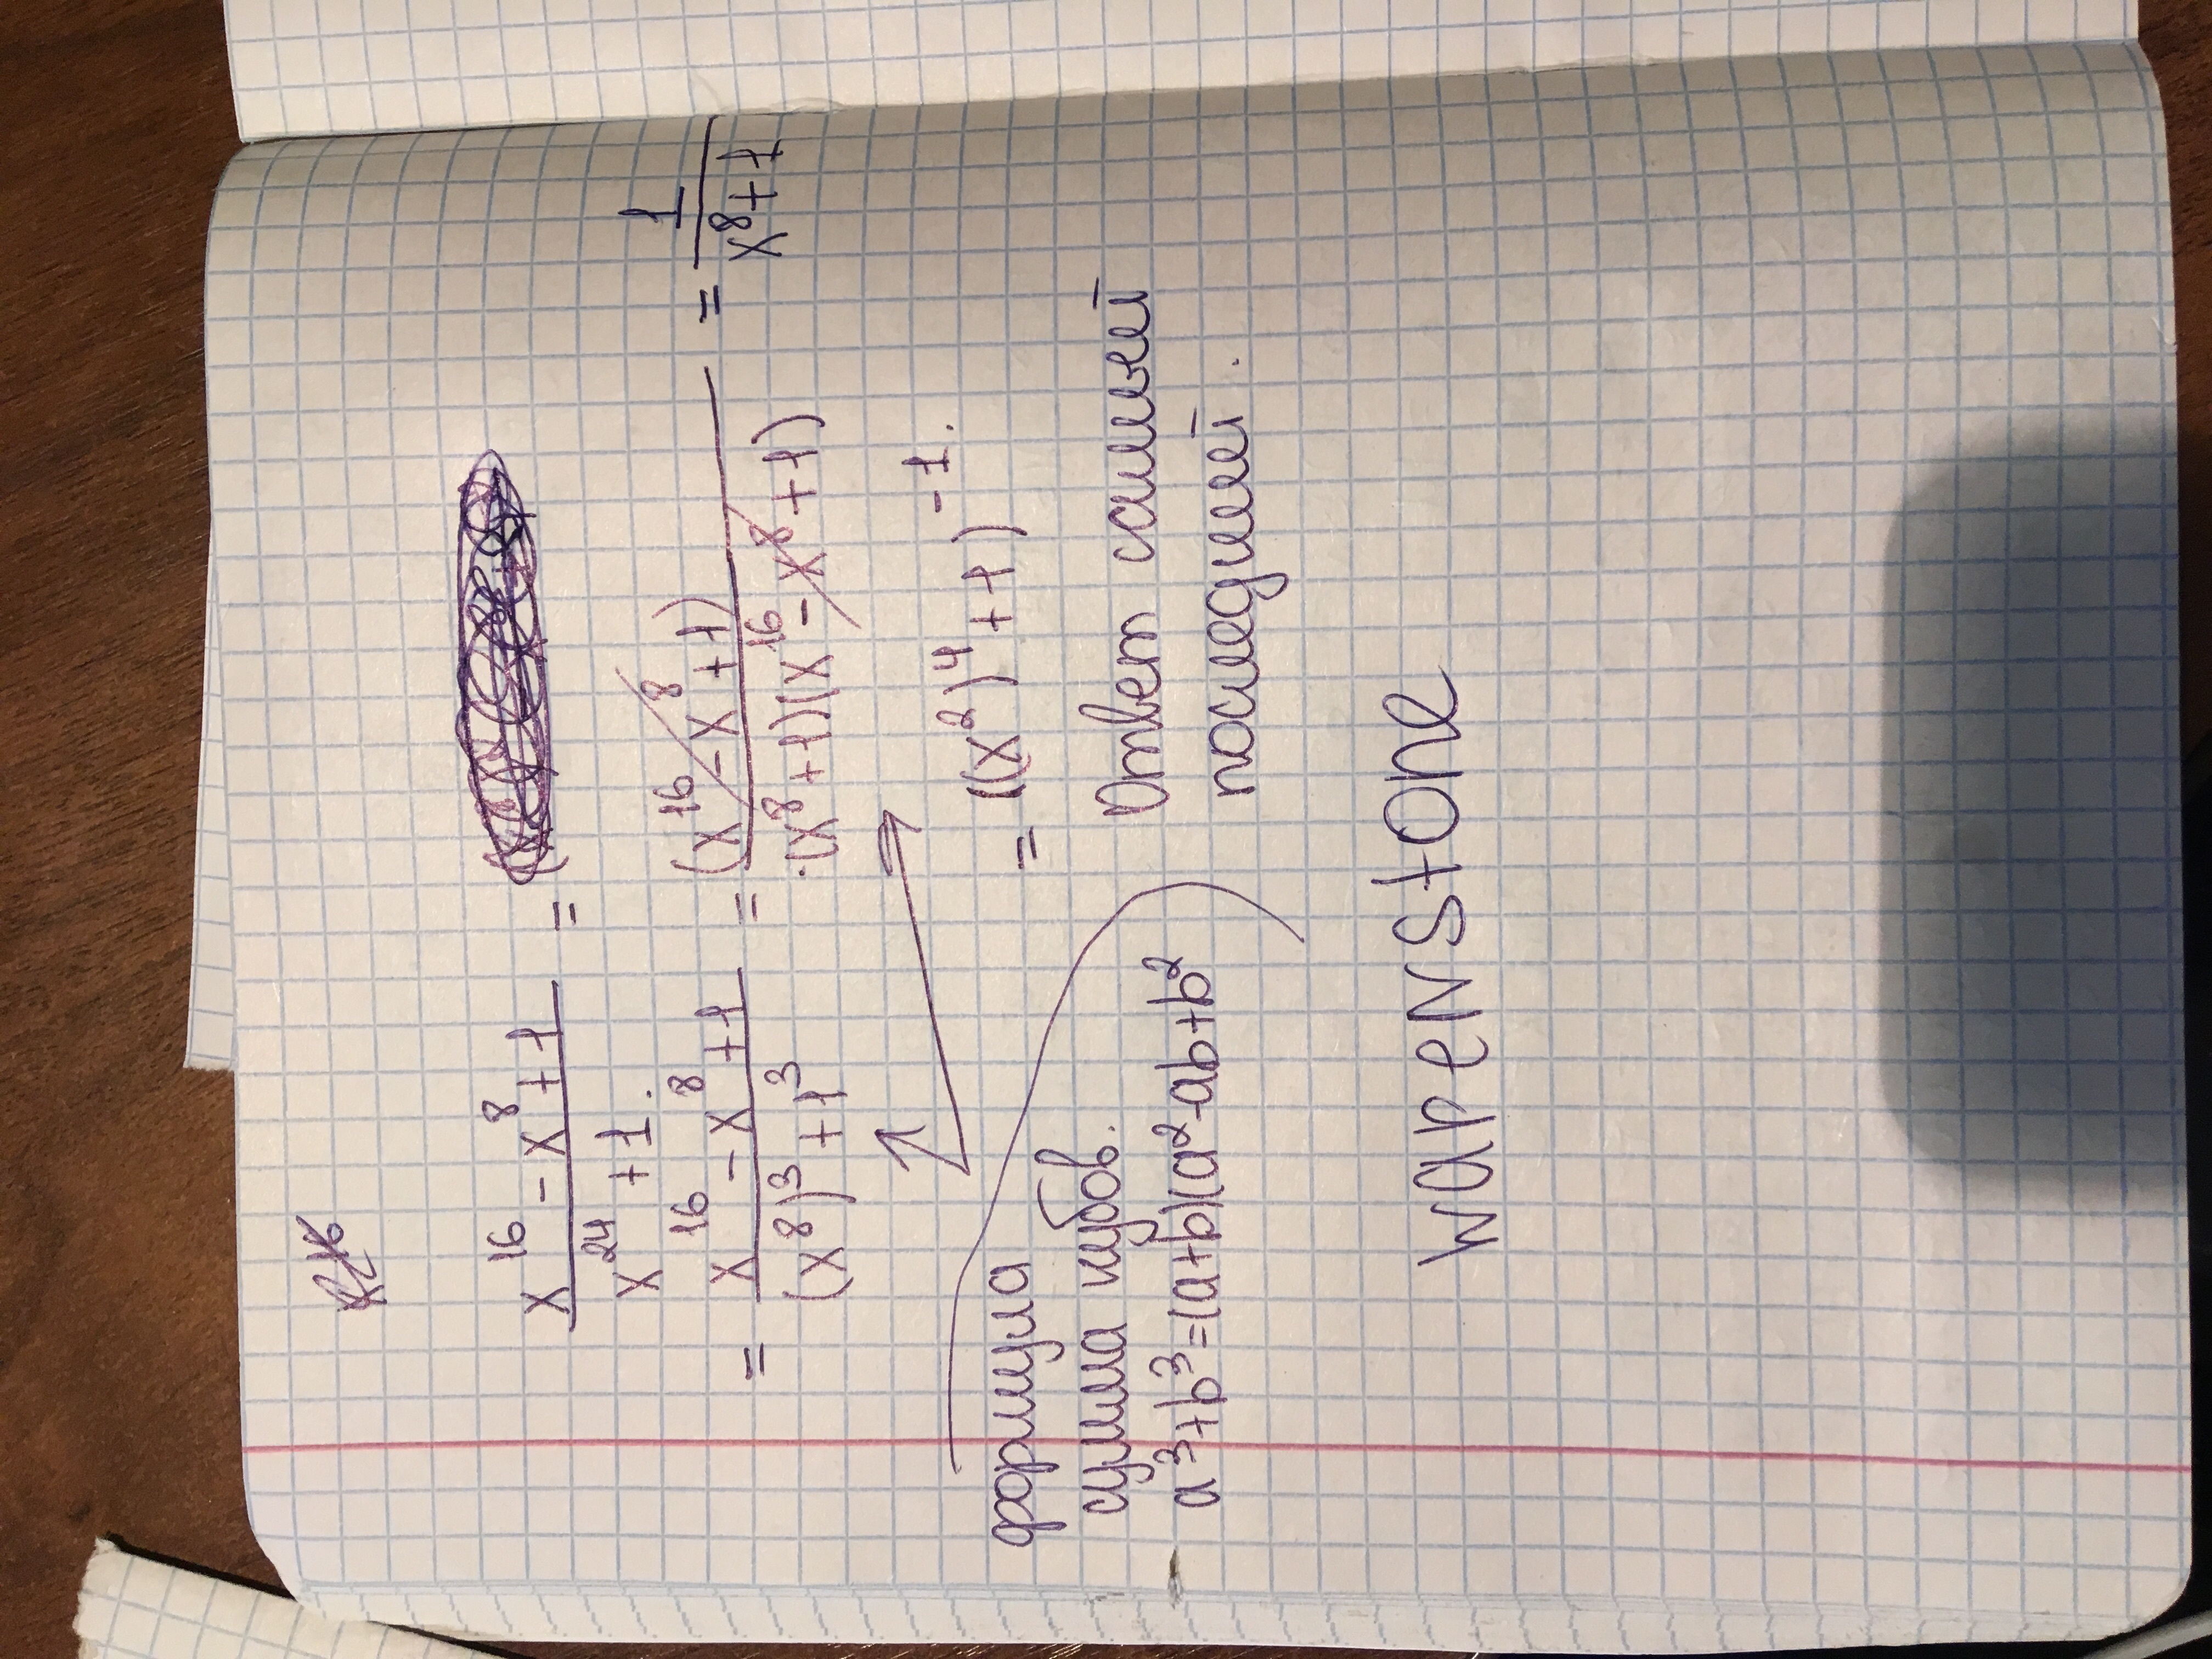 x¹⁶ - x⁸ + 1 / x²⁴ + 1. =
= x¹⁶ - x⁸ + 1 / (x⁸)³ + 1³ = (x¹⁶ - x⁸ + 1) / (x⁸ + 1)(x¹⁶ - x⁸ + 1) = 1 / x⁸ + 1
= ((x²)⁴ + 1)⁻¹.
формула
сумма кубов.
a³+b³=(a+b)(a²-ab+b²
Ответ самый
последний.
wapenstone